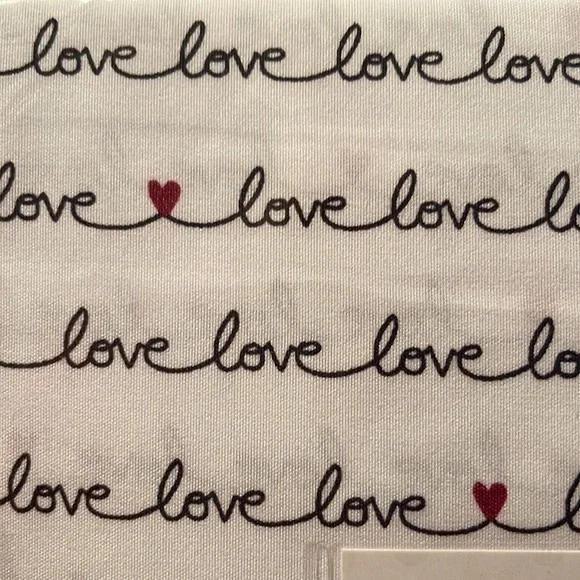 love love love love
love love love lo
love love love lo
love love love l